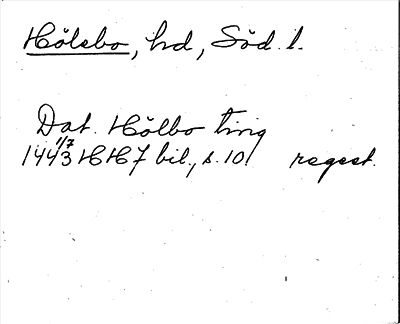 Hölebo, hd, Söd. l.
Dat. Hölbo ting
1/7
1443 HH 7 bil., s. 10. regest.